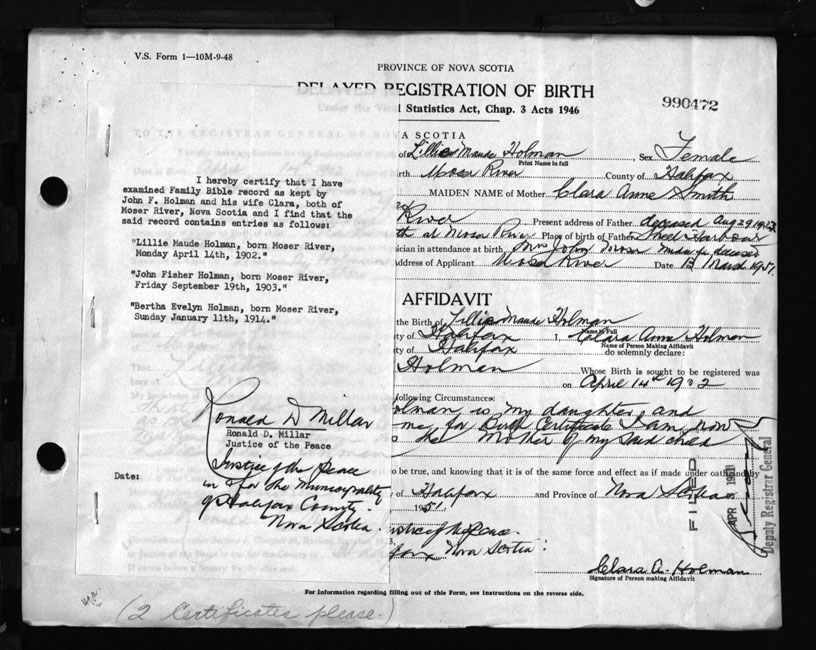 V.S. Form 1—10M-9-48
PROVINCE OF NOVA SCOTIA
DELAYED REGISTRATION OF BIRTH
990472
l Statistics Act, Chap. 3 Acts 1946
VA SCOTIA
of Lillie Maude Holman Sex Female
Print Name in full
Birth Moser River County of Halifax
MAIDEN NAME of Mother Clara Anne Smith
River Present address of Father deceased Aug 29
th at Moser River Place of birth of Father
sician in attendance at birth, Mrs John Moser Midwife, deceased
ddress of Applicant Moser River Date 13 March 1951
I hereby certify that I have
examined Family Bible record as kept by
John F. Holman and his wife Clara, both of
Moser River, Nova Scotia and I find that the
said record contains entries as follows:
"Lillie Maude Holman, born Moser River,
Monday April 14th, 1902."
"John Fisher Holman, born Moser River,
Friday September 19th, 1903."
"Bertha Evelyn Holman, born Moser River,
Sunday January 11th, 1914."
Ronald D Millar
Ronald D. Millar
Justice of the Peace
Justice of the Peace
in & for the Municipality
of Halifax County.
Nova Scotia.
Date:
AFFIDAVIT
the Birth of Lillie Maude Holman
Name in Full
ty of Halifax I, Clara Anne Holman
Name of Person Making Affidavit
ty of Halifax do solemnly declare:
Holman Whose Birth is sought to be registered was
on April 14th 1902
following Circumstances:
olman is my daughter and
me, for Birth Certificate I am now
the Mother of my said child
to be true, and knowing that it is of the same force and effect as if made under oath
of Halifax and Province of Nova Scotia
1951
ustice of the Peace
fax Nova Scotia
Clara A. Holman
Signature of Person making Affidavit
FILED
APR 3 1951
Deputy Registrar General
For Information regarding filling out of this Form, see Instructions on the reverse side.
(2 Certificates please.)